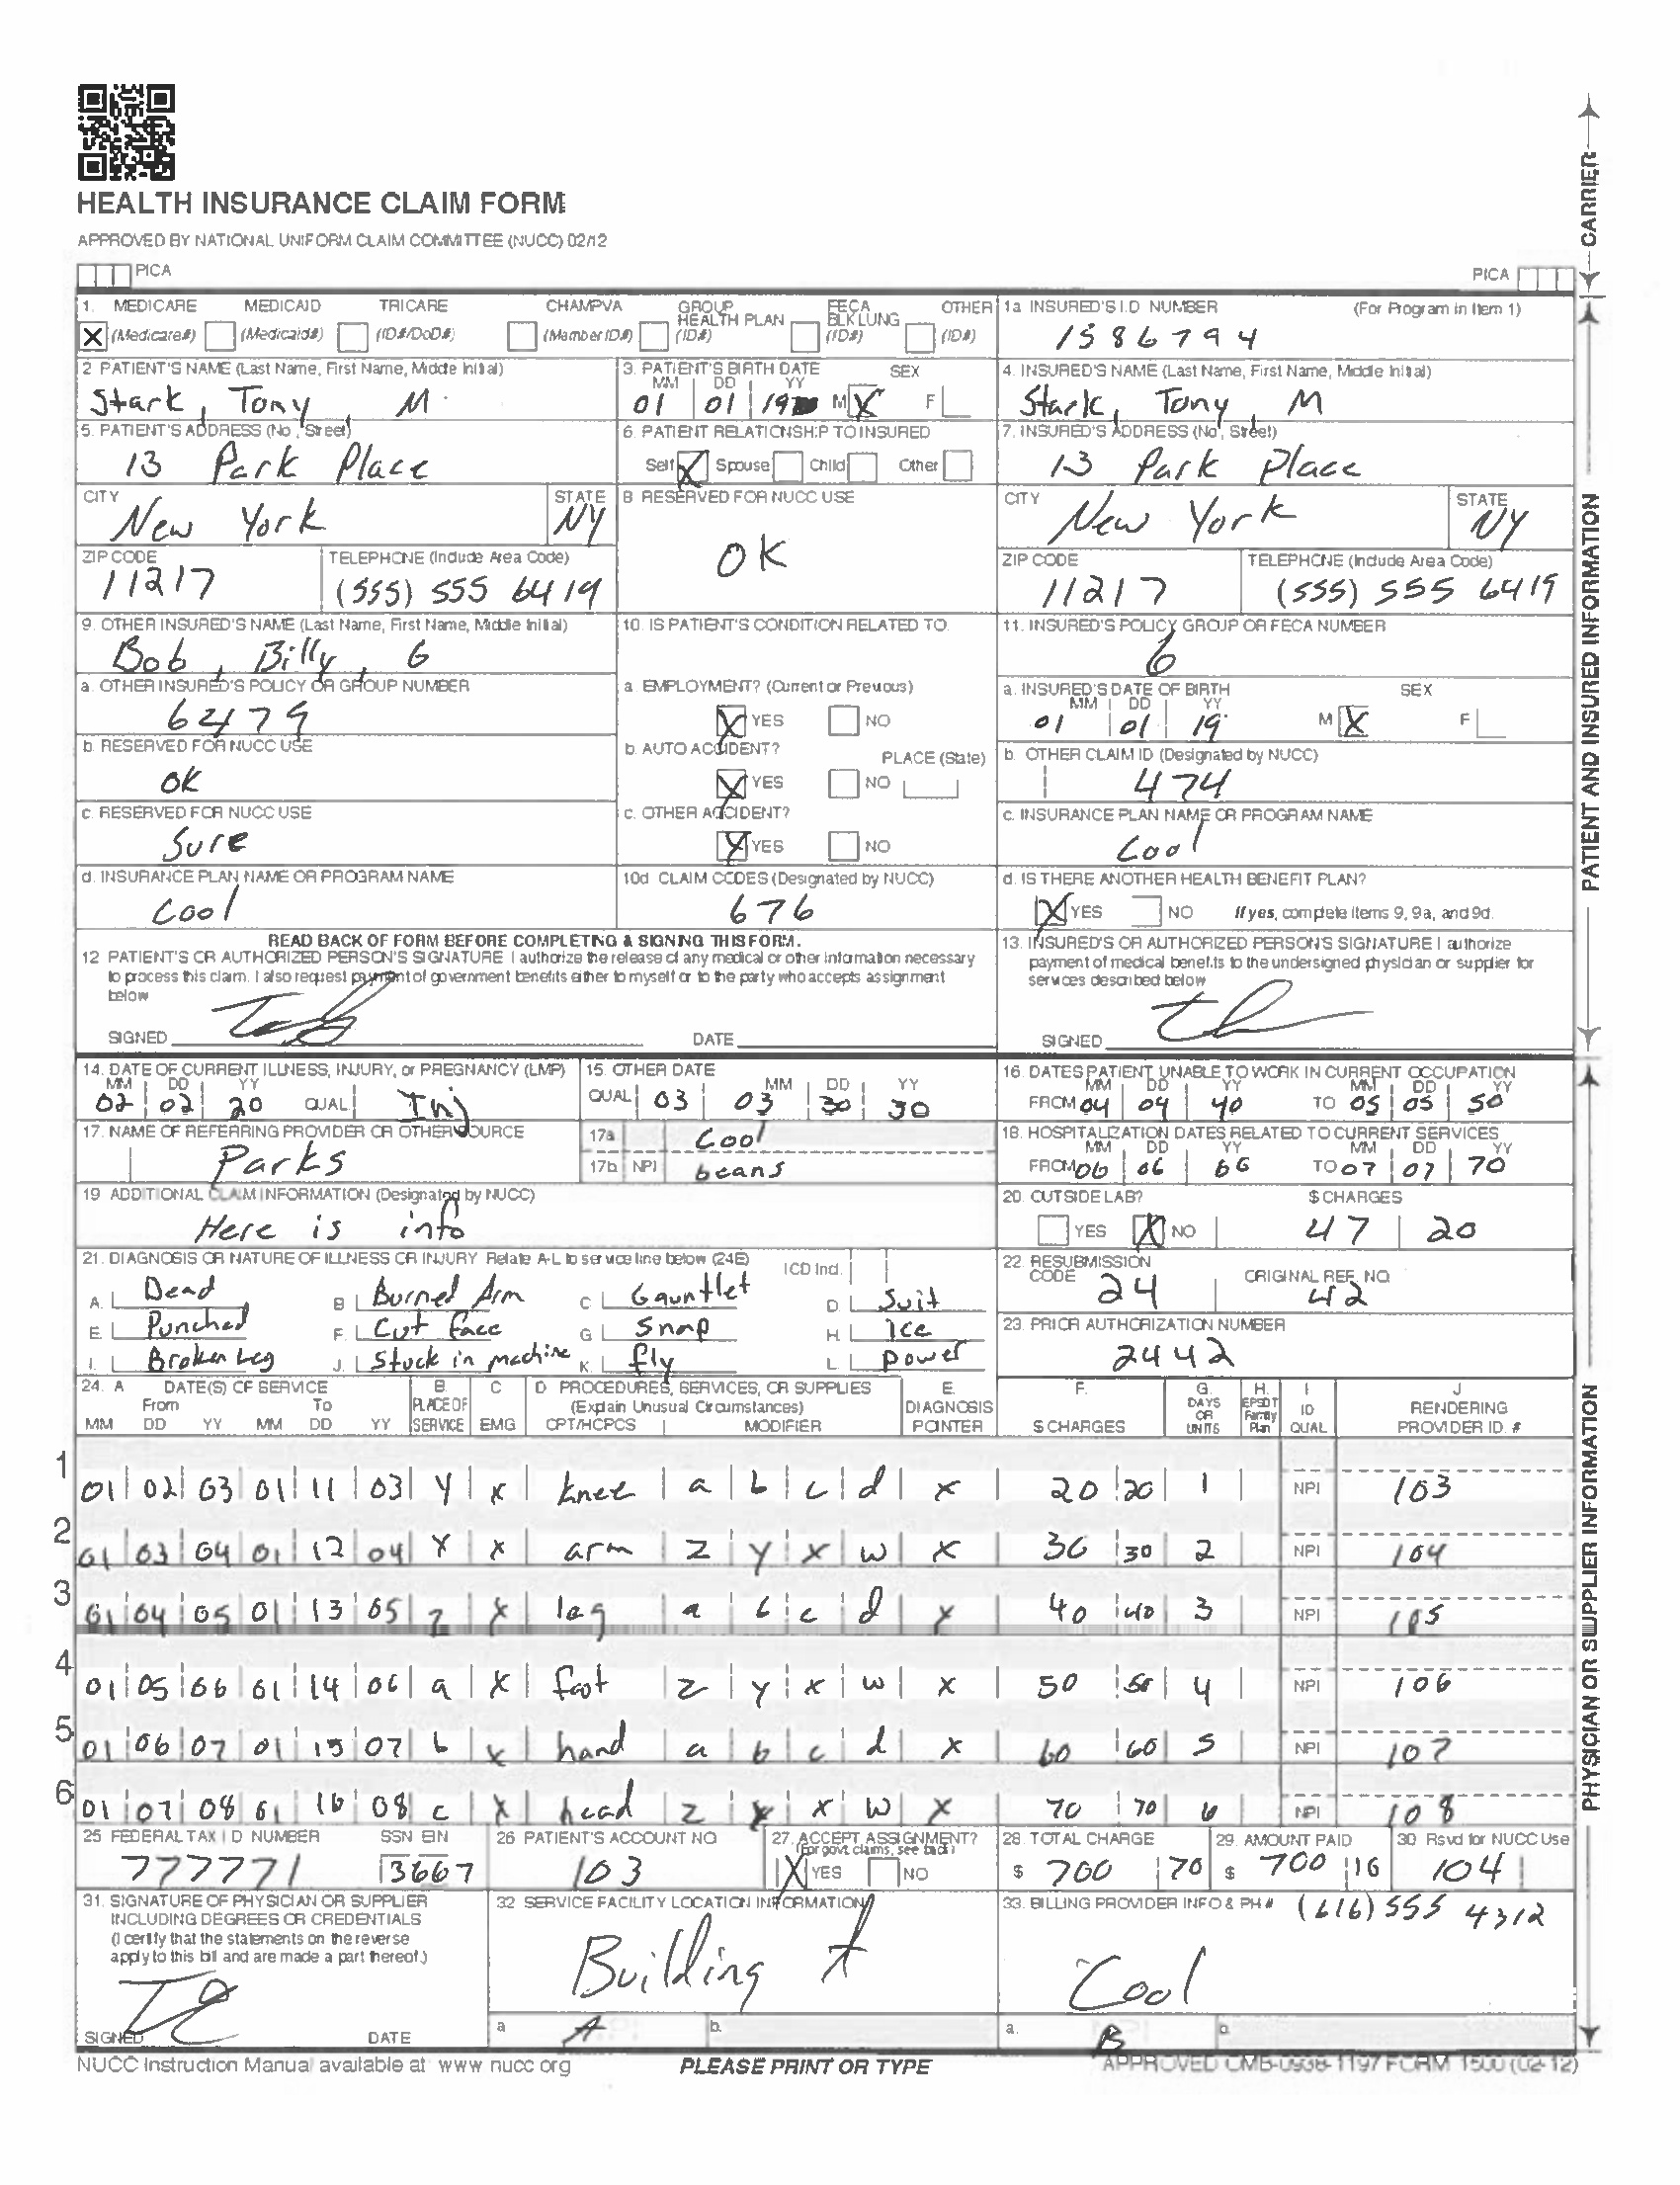 HEALTH INSURANCE CLAIM FORM
APPROVED BY NATIONAL UNIFORM CLAIM COMMITTEE (NUCC) 02/12
PICA PICA
CARRIER
1. MEDICARE MEDICAID TRICARE CHAMPVA GROUP HEALTH PLAN FECA BLK LUNG OTHER
X (Medicare#) (Medicaid#) (ID#/DoD#) (Member ID#) (ID#) (ID#) (ID#)
1a INSURED'S I.D NUMBER (For Program in Item 1)
1586794
2 PATIENT'S NAME (Last Name, First Name, Middle Initial)
Stark, Tony, M
3. PATIENT'S BIRTH DATE SEX
MM DD YY
01 01 19 M X F
4. INSURED'S NAME (Last Name, First Name, Middle Initial)
Stark, Tony, M
5. PATIENT'S ADDRESS (No, Street)
13 Park Place
6. PATIENT RELATIONSHIP TO INSURED
Self X Spouse Child Other
7. INSURED'S ADDRESS (No, Street)
13 Park Place
CITY STATE
New York NY
8 RESERVED FOR NUCC USE
OK
CITY STATE
New York NY
ZIP CODE TELEPHONE (Include Area Code)
11217 (555) 555 6419
ZIP CODE TELEPHONE (Include Area Code)
11217 (555) 555 6419
9. OTHER INSURED'S NAME (Last Name, First Name, Middle Initial)
Bob, Billy, G
10. IS PATIENT'S CONDITION RELATED TO
11. INSURED'S POLICY GROUP OR FECA NUMBER
6
a. OTHER INSURED'S POLICY OR GROUP NUMBER
6479
a. EMPLOYMENT? (Current or Previous)
X YES NO
a. INSURED'S DATE OF BIRTH SEX
MM DD YY
01 01 19 M X F
b. RESERVED FOR NUCC USE
OK
b. AUTO ACCIDENT? PLACE (State)
X YES NO
b. OTHER CLAIM ID (Designated by NUCC)
474
c. RESERVED FOR NUCC USE
Sure
c. OTHER ACCIDENT?
X YES NO
c. INSURANCE PLAN NAME OR PROGRAM NAME
Cool
d. INSURANCE PLAN NAME OR PROGRAM NAME
Cool
10d CLAIM CODES (Designated by NUCC)
676
d. IS THERE ANOTHER HEALTH BENEFIT PLAN?
X YES NO If yes, complete items 9, 9a, and 9d.
PATIENT AND INSURED INFORMATION
READ BACK OF FORM BEFORE COMPLETING & SIGNING THIS FORM.
12 PATIENT'S OR AUTHORIZED PERSON'S SIGNATURE I authorize the release of any medical or other information necessary
to process this claim. I also request payment of government benefits either to myself or to the party who accepts assignment
below
SIGNED DATE
13. INSURED'S OR AUTHORIZED PERSON'S SIGNATURE I authorize
payment of medical benefits to the undersigned physician or supplier for
services described below
SIGNED
14. DATE OF CURRENT ILLNESS, INJURY, or PREGNANCY (LMP)
MM DD YY
02 02 20 QUAL Inj
15. OTHER DATE
MM DD YY
QUAL 03 03 30 30
16. DATES PATIENT UNABLE TO WORK IN CURRENT OCCUPATION
MM DD YY MM DD YY
FROM 04 04 40 TO 05 05 50
17. NAME OF REFERRING PROVIDER OR OTHER SOURCE
Parks
17a Cool
17b NPI beans
18. HOSPITALIZATION DATES RELATED TO CURRENT SERVICES
MM DD YY MM DD YY
FROM 06 06 60 TO 07 07 70
19 ADDITIONAL CLAIM INFORMATION (Designated by NUCC)
Here is info
20. OUTSIDE LAB? $ CHARGES
YES X NO 47 20
21. DIAGNOSIS OR NATURE OF ILLNESS OR INJURY Relate A-L to service line below (24E) ICD Ind.
A. Dead B Burned Arm C Gauntlet D. Suit
E. Punched F. Cut face G Snap H. Ice
I. Broken Leg J. Stuck in machine K. fly L. power
22. RESUBMISSION CODE ORIGINAL REF. NO
24 42
23. PRIOR AUTHORIZATION NUMBER
2442
24. A DATE(S) OF SERVICE B. C D PROCEDURES, SERVICES, OR SUPPLIES E. F. G. H. I J
From To PLACE OF (Explain Unusual Circumstances) DIAGNOSIS DAYS OR EPSDT Family ID RENDERING
MM DD YY MM DD YY SERVICE EMG CPT/HCPCS MODIFIER POINTER $ CHARGES UNITS Plan QUAL PROVIDER ID. #
1 01 02 03 01 11 03 Y x knee a b c d x 20 20 1 NPI 103
2 01 03 04 01 12 04 X x arm z y x w x 30 30 2 NPI 104
3 01 04 05 01 13 05 z x leg a b c d x 40 40 3 NPI 105
4 01 05 06 01 14 06 a x foot z y x w x 50 50 4 NPI 106
5 01 06 07 01 15 07 b x hand a b c d x 60 60 5 NPI 107
6 01 07 08 01 16 08 c x head z y x w x 70 70 6 NPI 108
25 FEDERAL TAX I D NUMBER SSN EIN
777771 3667
26 PATIENT'S ACCOUNT NO
103
27. ACCEPT ASSIGNMENT?
(For govt. claims, see back)
X YES NO
28. TOTAL CHARGE
$ 700 70
29. AMOUNT PAID
$ 700 16
30 Rsvd for NUCC Use
104
31. SIGNATURE OF PHYSICIAN OR SUPPLIER
INCLUDING DEGREES OR CREDENTIALS
(I certify that the statements on the reverse
apply to this bill and are made a part thereof.)
SIGNED DATE
32 SERVICE FACILITY LOCATION INFORMATION
Building A
a A b.
33. BILLING PROVIDER INFO & PH # (616) 555 4312
Cool
a. B
PHYSICIAN OR SUPPLIER INFORMATION
NUCC Instruction Manual available at www nucc org
PLEASE PRINT OR TYPE
APPROVED OMB-0938-1197 FORM 1500 (02-12)